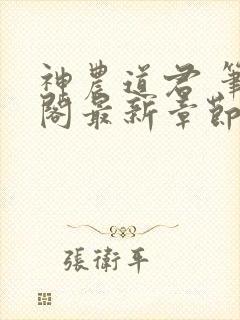 神農道君 筆
閣最新章節
張衛平